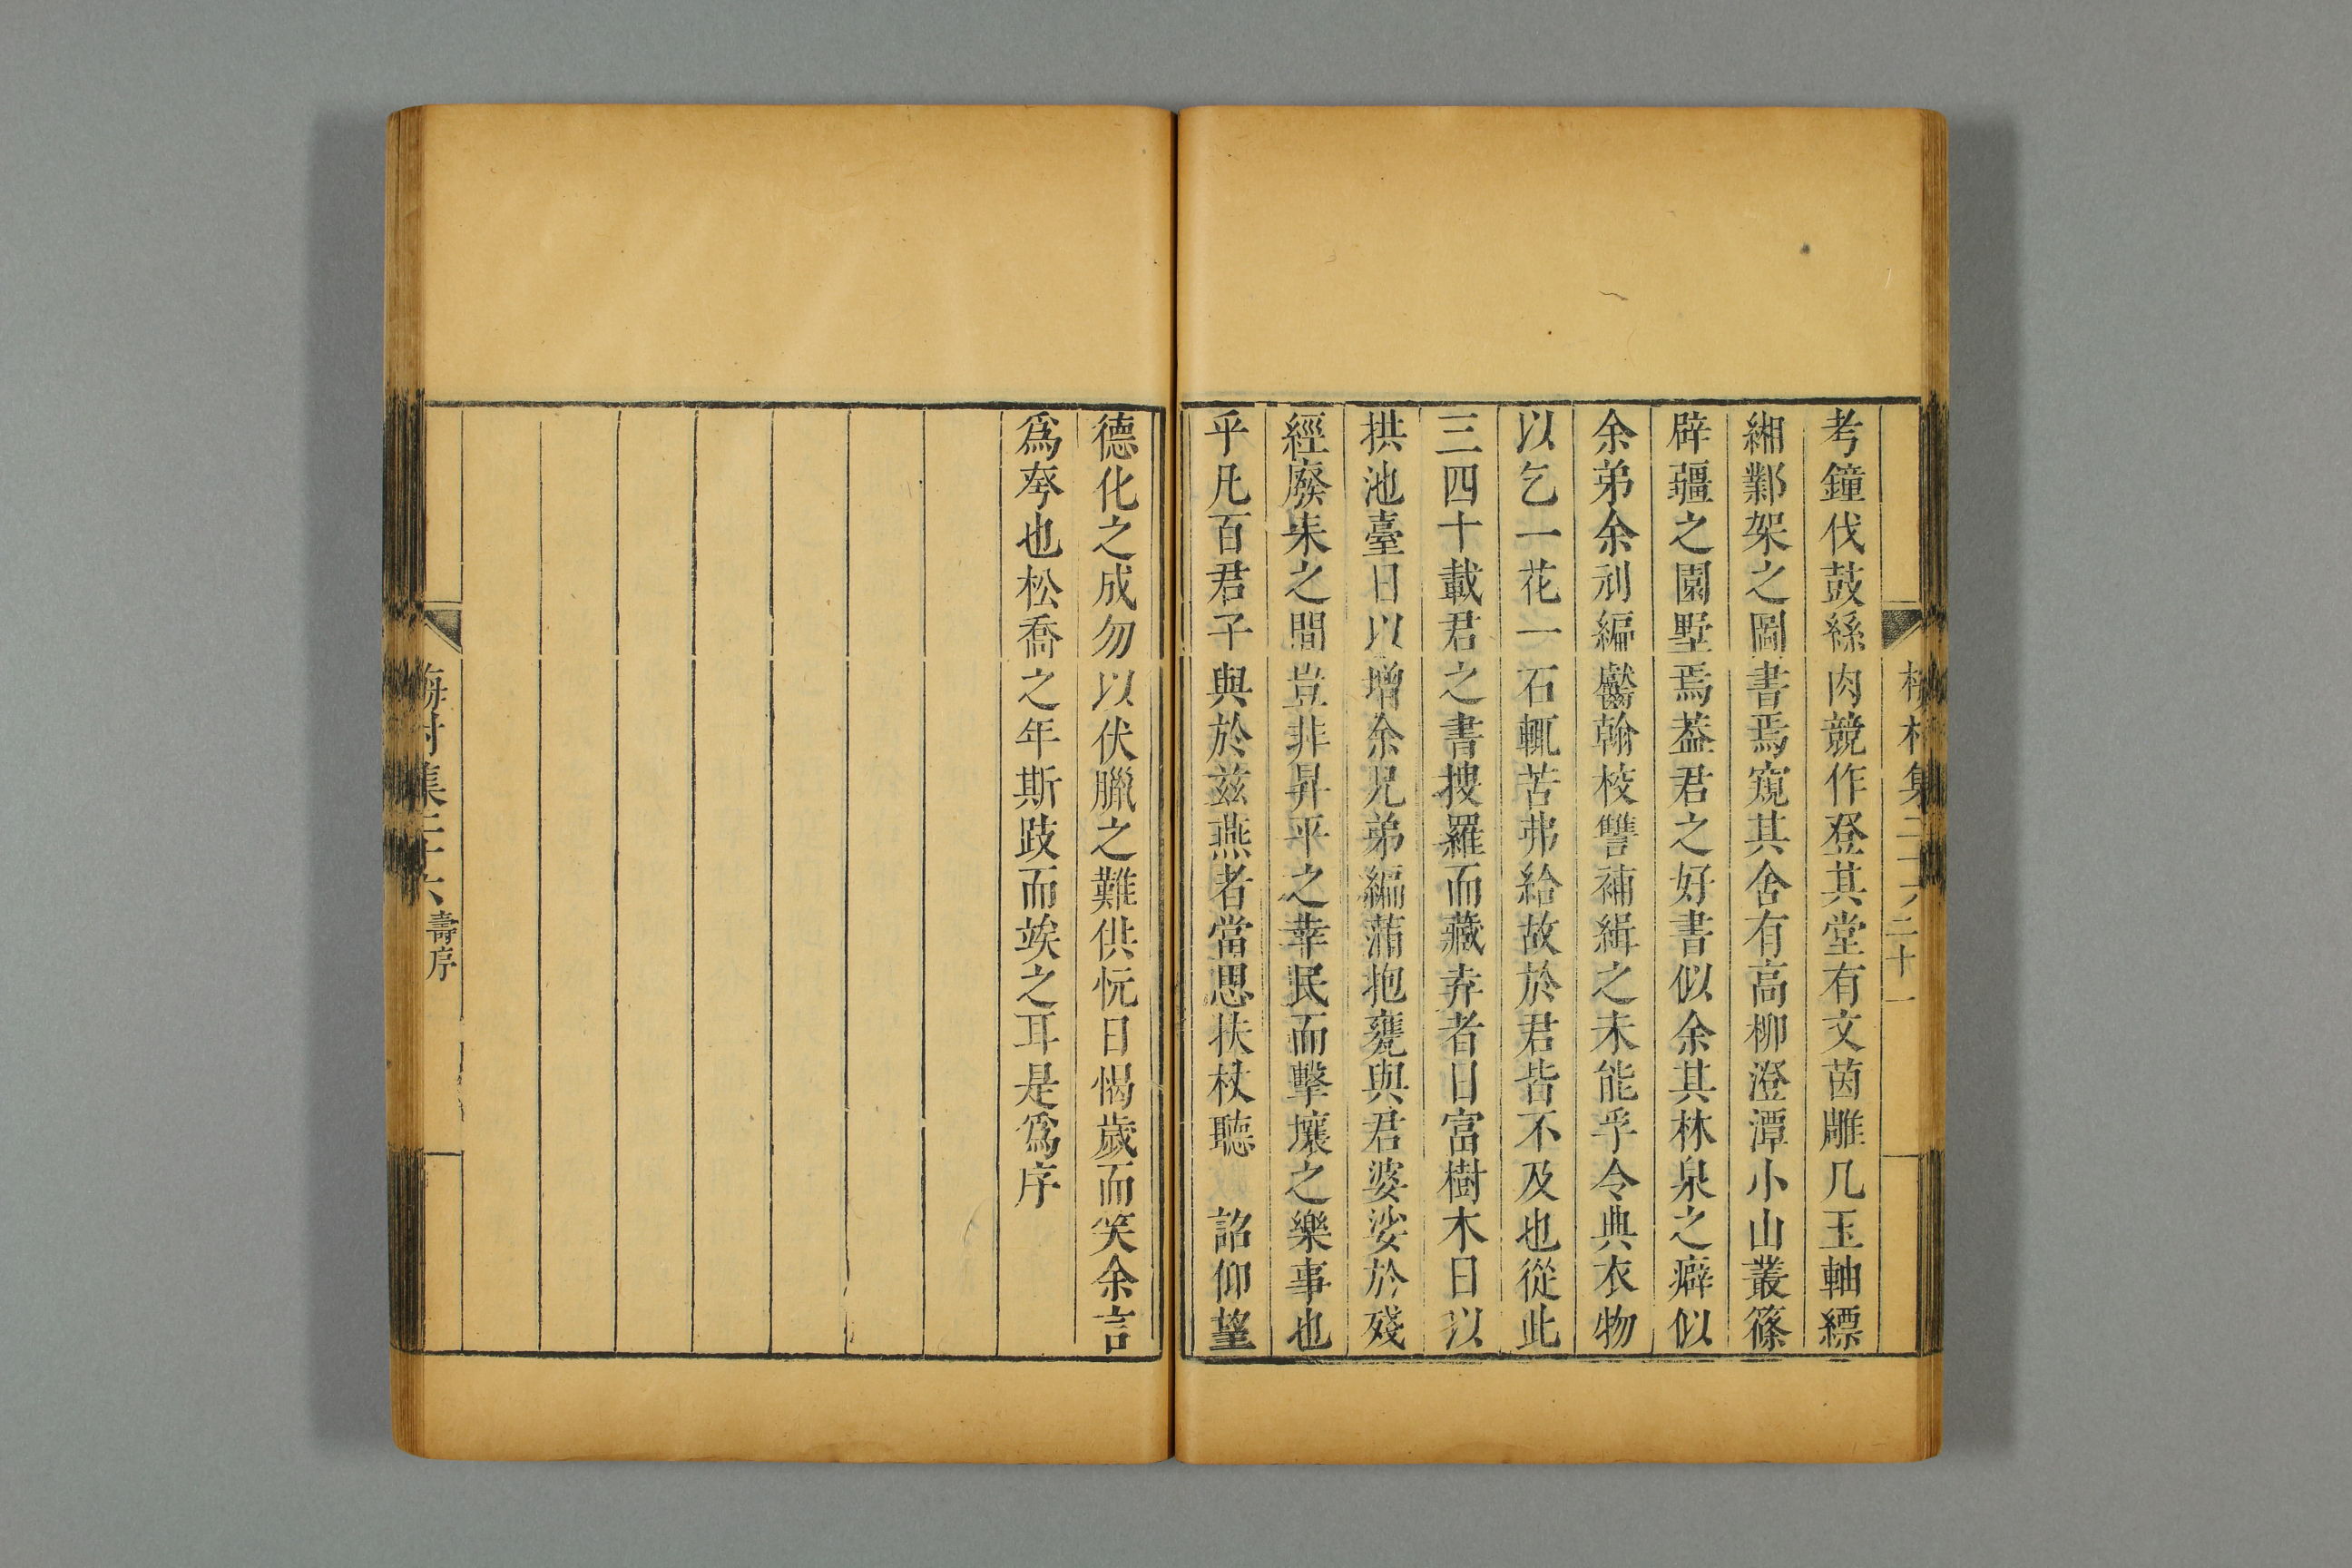 梅村集二十六 二十一
考鐘伐鼓絲肉競作登其堂有文茵雕几玉軸縹
緗鄴架之圖書焉窺其舍有高柳澄潭小山叢篠
辟疆之園墅焉葢君之好書似余其林泉之癖似
余弟余刓編齾翰校讐補緝之未能乎令典衣物
以乞一花一石輒苦弗給故於君皆不及也從此
三四十載君之書搜羅而藏弆者日富樹木日以
拱池臺日以增余兄弟編蒲抱甕與君婆娑於殘
經廢耒之間豈非昇平之幸民而擊壤之樂事也
乎凡百君子與於兹燕者當思扶杖聽 詔仰望
德化之成勿以伏臘之難供忨日愒歲而笑余言
爲夸也松喬之年斯跂而竢之耳是爲序
梅村集二十六 壽序